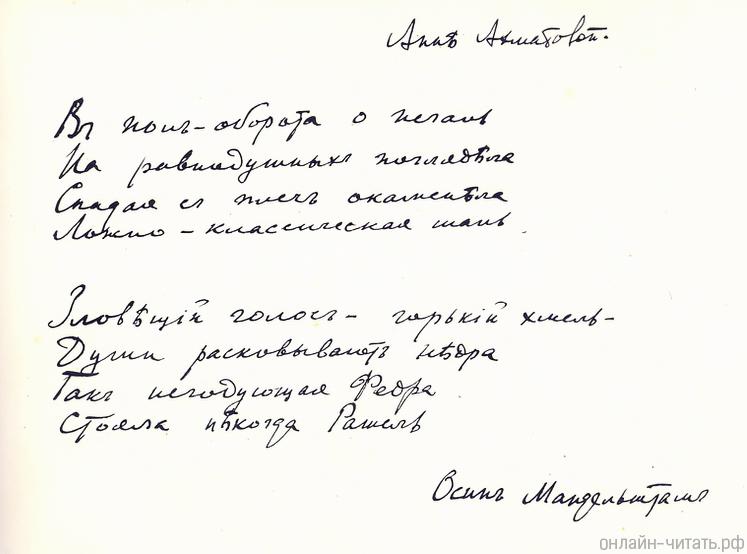 Аннѣ Ахматовой.
Въ полъ-оборота о печаль
На равнодушныхъ поглядѣла
Спадая съ плечъ окаменѣла
Ложно-классическая шаль.
Зловѣщій голосъ – горькій хмель –
Души расковываетъ нѣдра
Такъ негодующая Федра
Стояла нѣкогда Рашель
Осипъ Мандельштамъ
онлайн-читать.рф